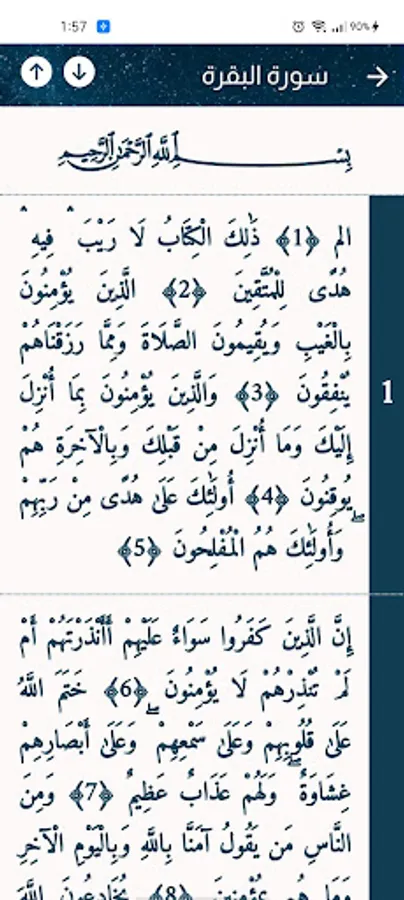 1:57 90%
سورة البقرة
بِسْـــــــمِ ٱللَّهِ ٱلرَّحْمَٰنِ ٱلرَّحِيمِ
الم ﴿1﴾ ذَٰلِكَ الْكِتَابُ لَا رَيْبَ ۛ فِيهِ ۛ
هُدًى لِلْمُتَّقِينَ ﴿2﴾ الَّذِينَ يُؤْمِنُونَ
بِالْغَيْبِ وَيُقِيمُونَ الصَّلَاةَ وَمِمَّا رَزَقْنَاهُمْ
يُنْفِقُونَ ﴿3﴾ وَالَّذِينَ يُؤْمِنُونَ بِمَا أُنْزِلَ
1
إِلَيْكَ وَمَا أُنْزِلَ مِنْ قَبْلِكَ وَبِالْآخِرَةِ هُمْ
يُوقِنُونَ ﴿4﴾ أُولَٰئِكَ عَلَىٰ هُدًى مِنْ رَبِّهِمْ ۖ
وَأُولَٰئِكَ هُمُ الْمُفْلِحُونَ ﴿5﴾
إِنَّ الَّذِينَ كَفَرُوا سَوَاءٌ عَلَيْهِمْ أَأَنْذَرْتَهُمْ أَمْ
لَمْ تُنْذِرْهُمْ لَا يُؤْمِنُونَ ﴿6﴾ خَتَمَ اللَّهُ
عَلَىٰ قُلُوبِهِمْ وَعَلَىٰ سَمْعِهِمْ ۖ وَعَلَىٰ أَبْصَارِهِمْ
غِشَاوَةٌ ۖ وَلَهُمْ عَذَابٌ عَظِيمٌ ﴿7﴾ وَمِنَ
النَّاسِ مَن يَقُولُ آمَنَّا بِاللَّهِ وَبِالْيَوْمِ الْآخِرِ
وَمَا هُم بِمُؤْمِنِينَ ﴿8﴾ يُخَادِعُونَ اللَّهَ